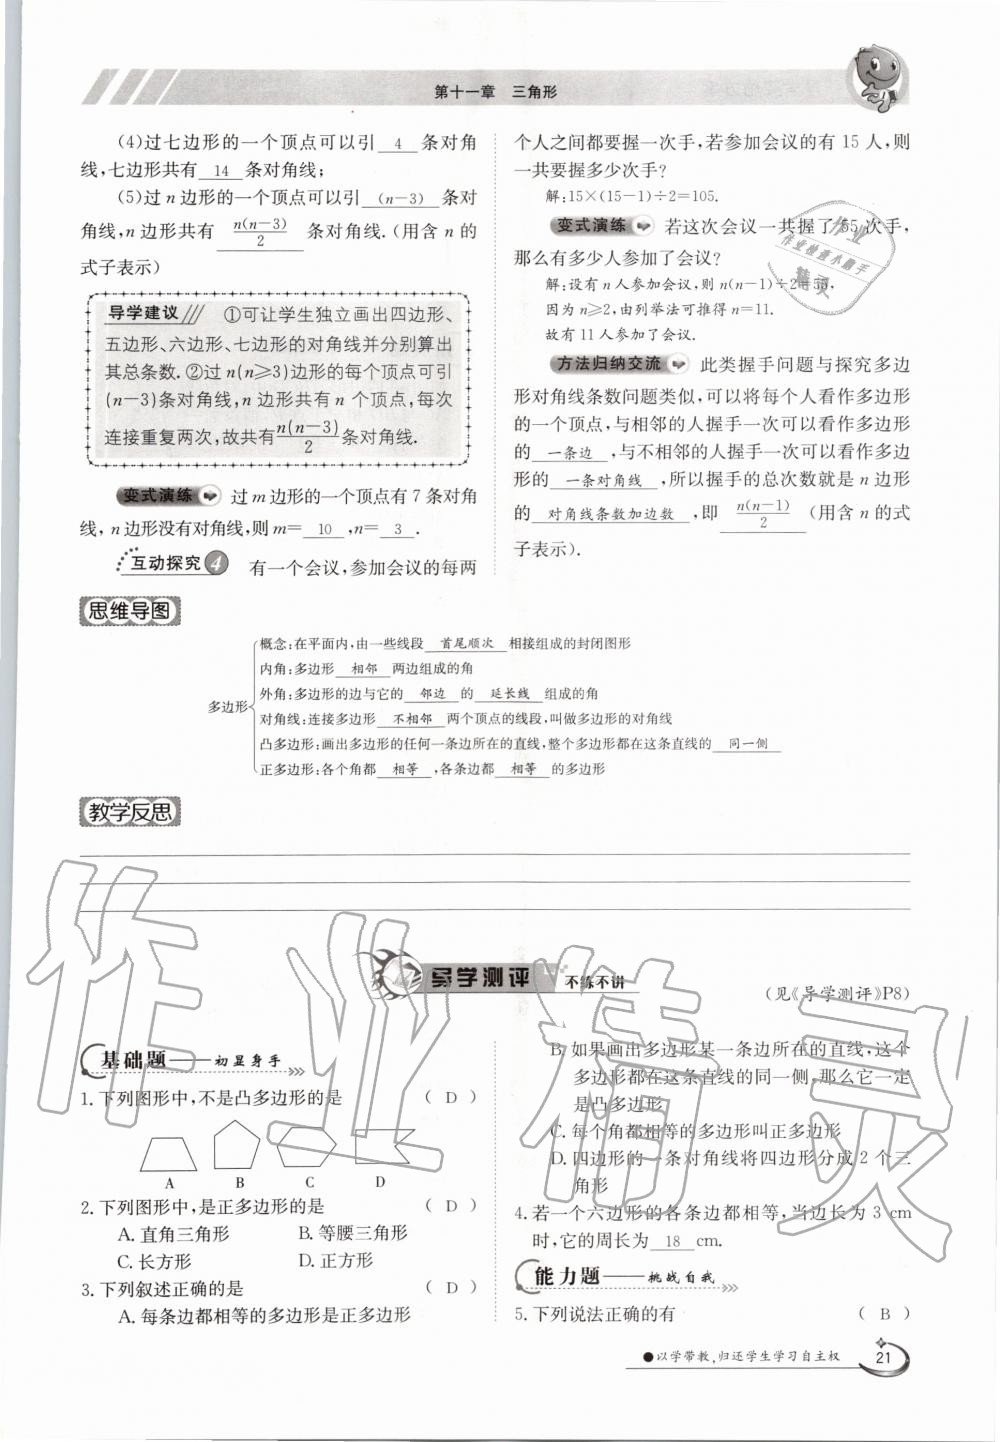 第十一章 三角形
(4)过七边形的一个顶点可以引 4 条对角
线,七边形共有 14 条对角线;
(5)过 n 边形的一个顶点可以引 (n-3) 条对
角线,n 边形共有 n(n-3)/2 条对角线.(用含 n 的
式子表示)
导学建议 ①可让学生独立画出四边形、
五边形、六边形、七边形的对角线并分别算出
其总条数.②过 n(n≥3)边形的每个顶点可引
(n-3)条对角线,n 边形共有 n 个顶点,每次
连接重复两次,故共有n(n-3)/2条对角线.
变式演练 过 m 边形的一个顶点有 7 条对角
线, n 边形没有对角线,则 m= 10 ,n= 3 .
互动探究4 有一个会议,参加会议的每两
个人之间都要握一次手,若参加会议的有 15 人,则
一共要握多少次手?
解:15×(15-1)÷2=105.
变式演练 若这次会议一共握了 55 次手,
那么有多少人参加了会议?
解:设有 n 人参加会议,则 n(n-1)÷2=55,
因为 n≥2,由列举法可推得 n=11.
故有 11 人参加了会议.
方法归纳交流 此类握手问题与探究多边
形对角线条数问题类似,可以将每个人看作多边形
的一个顶点,与相邻的人握手一次可以看作多边形
的 一条边 ,与不相邻的人握手一次可以看作多边
形的 一条对角线 ,所以握手的总次数就是 n 边形
的 对角线条数加边数 ,即 n(n-1)/2 (用含 n 的式
子表示).
思维导图
多边形
概念:在平面内,由一些线段 首尾顺次 相接组成的封闭图形
内角:多边形 相邻 两边组成的角
外角:多边形的边与它的 邻边 的 延长线 组成的角
对角线:连接多边形 不相邻 两个顶点的线段,叫做多边形的对角线
凸多边形:画出多边形的任何一条边所在的直线,整个多边形都在这条直线的 同一侧
正多边形:各个角都 相等 ,各条边都 相等 的多边形
教学反思
导学测评 不练不讲
(见《导学测评》P8)
基础题——初显身手
1.下列图形中,不是凸多边形的是 ( D )
A B C D
2.下列图形中,是正多边形的是 ( D )
A.直角三角形 B.等腰三角形
C.长方形 D.正方形
3.下列叙述正确的是 ( D )
A.每条边都相等的多边形是正多边形
B.如果画出多边形某一条边所在的直线,这个
多边形都在这条直线的同一侧,那么它一定
是凸多边形
C.每个角都相等的多边形叫正多边形
D.四边形的一条对角线将四边形分成 2 个三
角形
4.若一个六边形的各条边都相等,当边长为 3 cm
时,它的周长为 18 cm.
能力题——挑战自我
5.下列说法正确的有 ( B )
●以学带教,归还学生学习自主权 21
作业精灵
作业
作业检查小助手
精灵